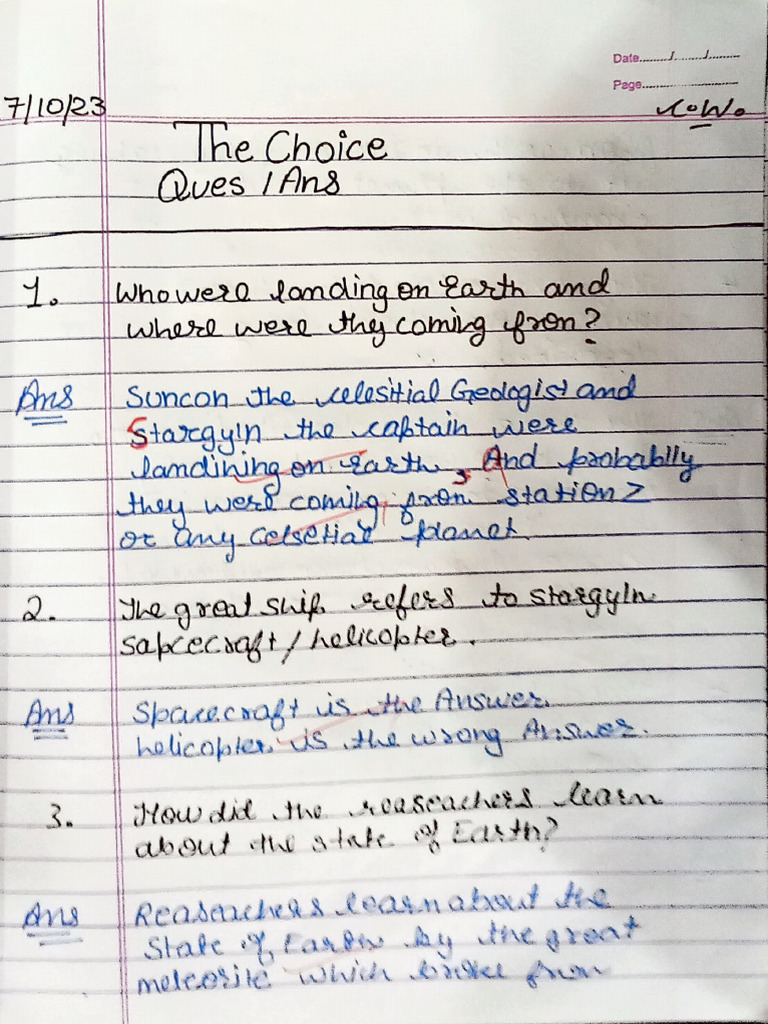 Date......../......../........
Page........................
7/10/23
C.W.
The Choice
Ques / Ans
1. Who were landing on Earth and
where were they coming from?
Ans Suncon the celesitial Geologist and
Stargyln the captain were
landining on Earth, And probablly
they were coming from station Z
or any celsetial planet.
2. The great ship refers to stargyln
sapcecraft / helicopter.
Ans Spacecraft is the Answer.
helicopter is the wrong Answer.
3. How did the reaseachers learn
about the state of Earth?
Ans Reaseachers learn about the
State of Earth by the great
meteorite which broke from